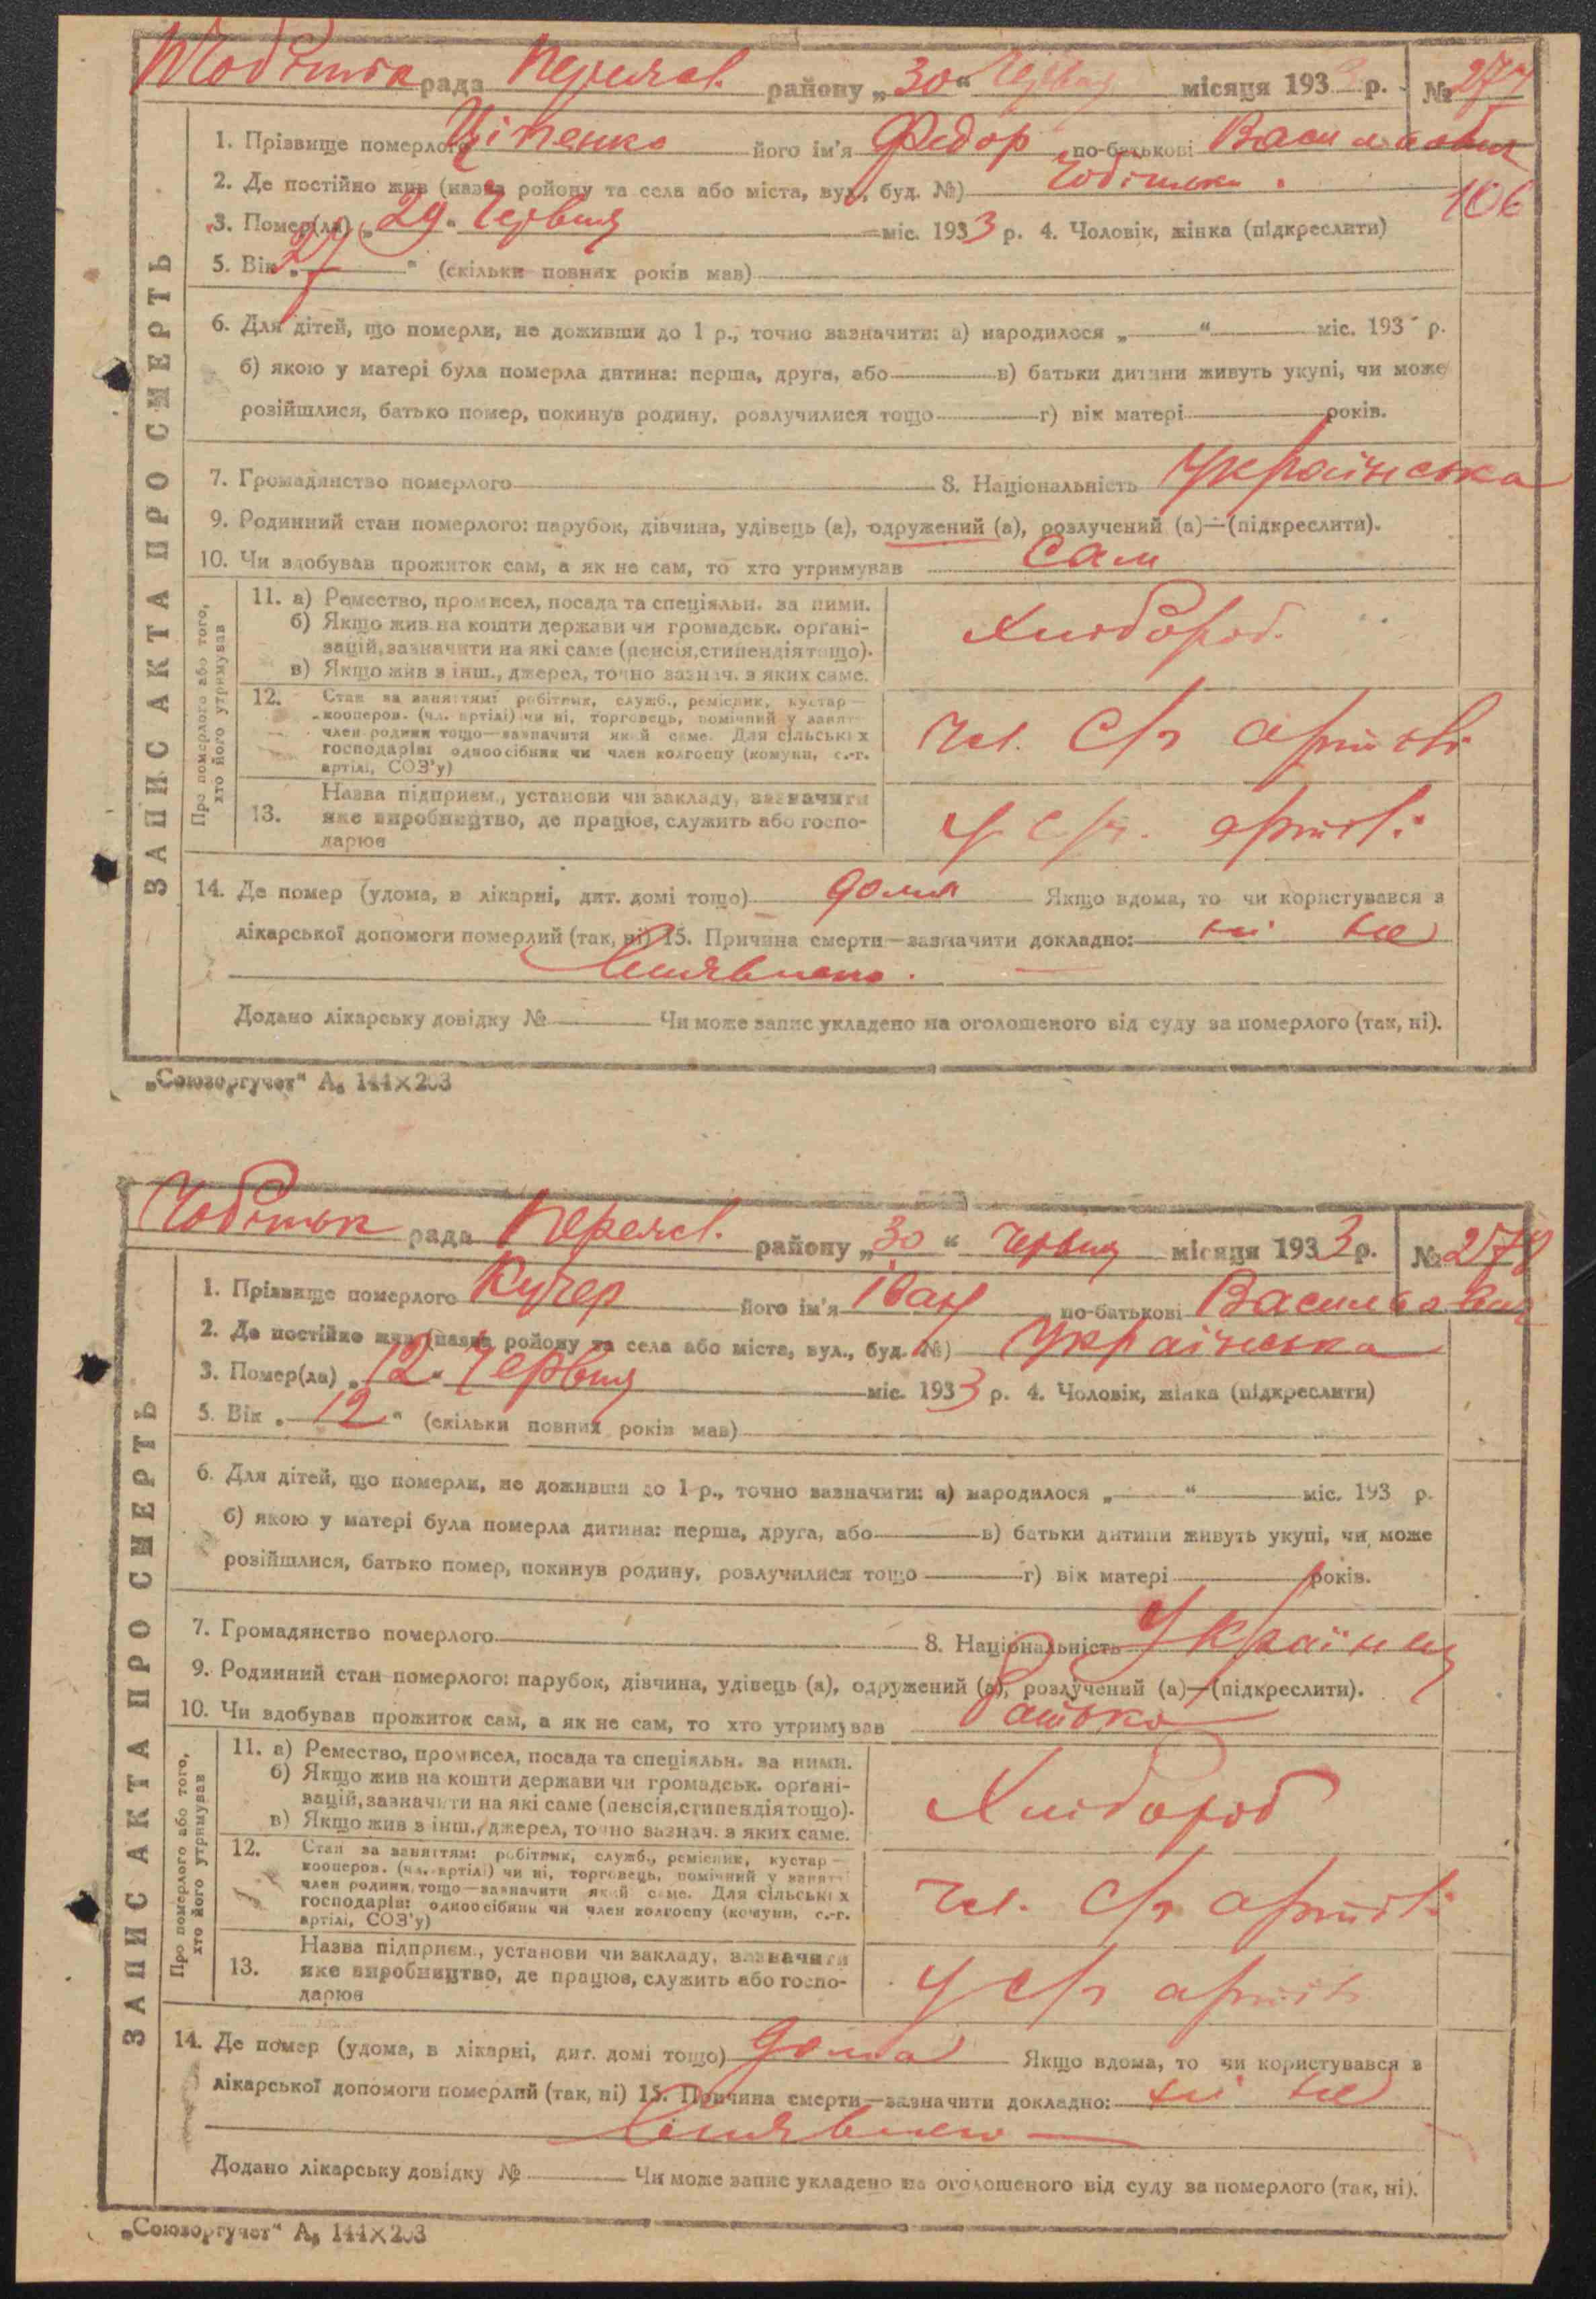 рада Переясл. району „30“ Червня місяця 1933 р. № 277
1. Прізвище померлого Ціпенко його ім'я Федор по-батькові Васильович
2. Де постійно жив (назва району та села або міста, вул., буд. №)
106
3. Помер(ла) „29“ Червня міс. 1933 р. 4. Чоловік, жінка (підкреслити)
5. Вік „ “ (скільки повних років мав)
6. Для дітей, що померли, не доживши до 1 р., точно зазначити: а) народилося „ “ міс. 193 р.
б) якою у матері була померла дитина: перша, друга, або в) батьки дитини живуть укупі, чи може
розійшлися, батько помер, покинув родину, розлучилися тощо г) вік матері років.
7. Громадянство померлого 8. Національність Українська
9. Родинний стан померлого: парубок, дівчина, удівець (а), одружений (а), розлучений (а)—(підкреслити).
10. Чи здобував прожиток сам, а як не сам, то хто утримував сам
ЗАПИС АКТА ПРО СМЕРТЬ
Про померлого або того,
хто його утримував
11. а) Ремество, промисел, посада та спеціяльн. за ними.
б) Якщо жив на кошти держави чи громадськ. органі-
зацій, зазначити на які саме (пенсія, стипендія тощо).
в) Якщо жив з інш., джерел, точно зазнач. з яких саме.
Хлібороб.
12. Стан за заняттям: робітник, служб., ремісник, кустар—
кооперов. (чл. артілі) чи ні, торговець, помічний у занят—
член родини тощо—зазначити який саме. Для сільських
господарів: одноосібник чи член колгоспу (комуни, с.-г.
артілі, СОЗ'у)
чл. с/г артілі
13. Назва підприєм., установи чи закладу, зазначити
яке виробництво, де працює, служить або госпо-
дарює
У с/г. артілі
14. Де помер (удома, в лікарні, дит. домі тощо) дома Якщо вдома, то чи користувався з
лікарської допомоги померлий (так, ні) 15. Причина смерти—зазначити докладно: не
Додано лікарську довідку № Чи може запис укладено на оголошеного від суду за померлого (так, ні).
„Союзоргучет“ А₆ 144×203
рада Переясл. району „30“ Червня місяця 1933 р. № 278
1. Прізвище померлого Кучер його ім'я Іван по-батькові Васильович
2. Де постійно жив (назва району та села або міста, вул., буд. №) Українська
3. Помер(ла) „12“ Червня міс. 1933 р. 4. Чоловік, жінка (підкреслити)
5. Вік „12“ (скільки повних років мав)
6. Для дітей, що померли, не доживши до 1 р., точно зазначити: а) народилося „ “ міс. 193 р.
б) якою у матері була померла дитина: перша, друга, або в) батьки дитини живуть укупі, чи може
розійшлися, батько помер, покинув родину, розлучилися тощо г) вік матері років.
7. Громадянство померлого 8. Національність Українец
9. Родинний стан померлого: парубок, дівчина, удівець (а), одружений (а), розлучений (а)—(підкреслити).
10. Чи здобував прожиток сам, а як не сам, то хто утримував батько
ЗАПИС АКТА ПРО СМЕРТЬ
Про померлого або того,
хто його утримував
11. а) Ремество, промисел, посада та спеціяльн. за ними.
б) Якщо жив на кошти держави чи громадськ. органі-
зацій, зазначити на які саме (пенсія, стипендія тощо).
в) Якщо жив з інш., джерел, точно зазнач. з яких саме.
Хлібороб
12. Стан за заняттям: робітник, служб., ремісник, кустар—
кооперов. (чл. артілі) чи ні, торговець, помічний у занят—
член родини тощо—зазначити який саме. Для сільських
господарів: одноосібник чи член колгоспу (комуни, с.-г.
артілі, СОЗ'у)
чл. с/г артілі
13. Назва підприєм., установи чи закладу, зазначити
яке виробництво, де працює, служить або госпо-
дарює
У с/г артілі
14. Де помер (удома, в лікарні, дит. домі тощо) дома Якщо вдома, то чи користувався з
лікарської допомоги померлий (так, ні) 15. Причина смерти—зазначити докладно: не
Додано лікарську довідку № Чи може запис укладено на оголошеного від суду за померлого (так, ні).
„Союзоргучет“ А₆ 144×203